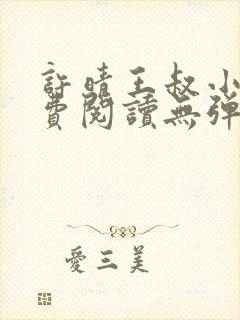 許晴王叔小
費閱讀無彈
愛三美